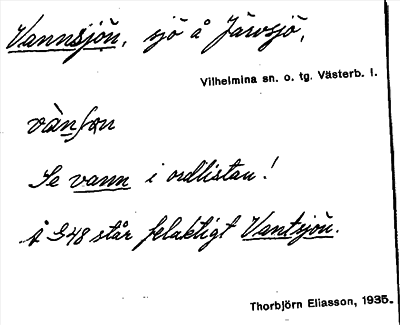 Vannsjön, sjö å Järvsjö,
Vilhelmina sn. o. tg. Västerb. l.
vànʃɑn
Se vann i ordlistan!
å G48 står felaktigt Vantsjön.
Thorbjörn Eliasson, 1935.